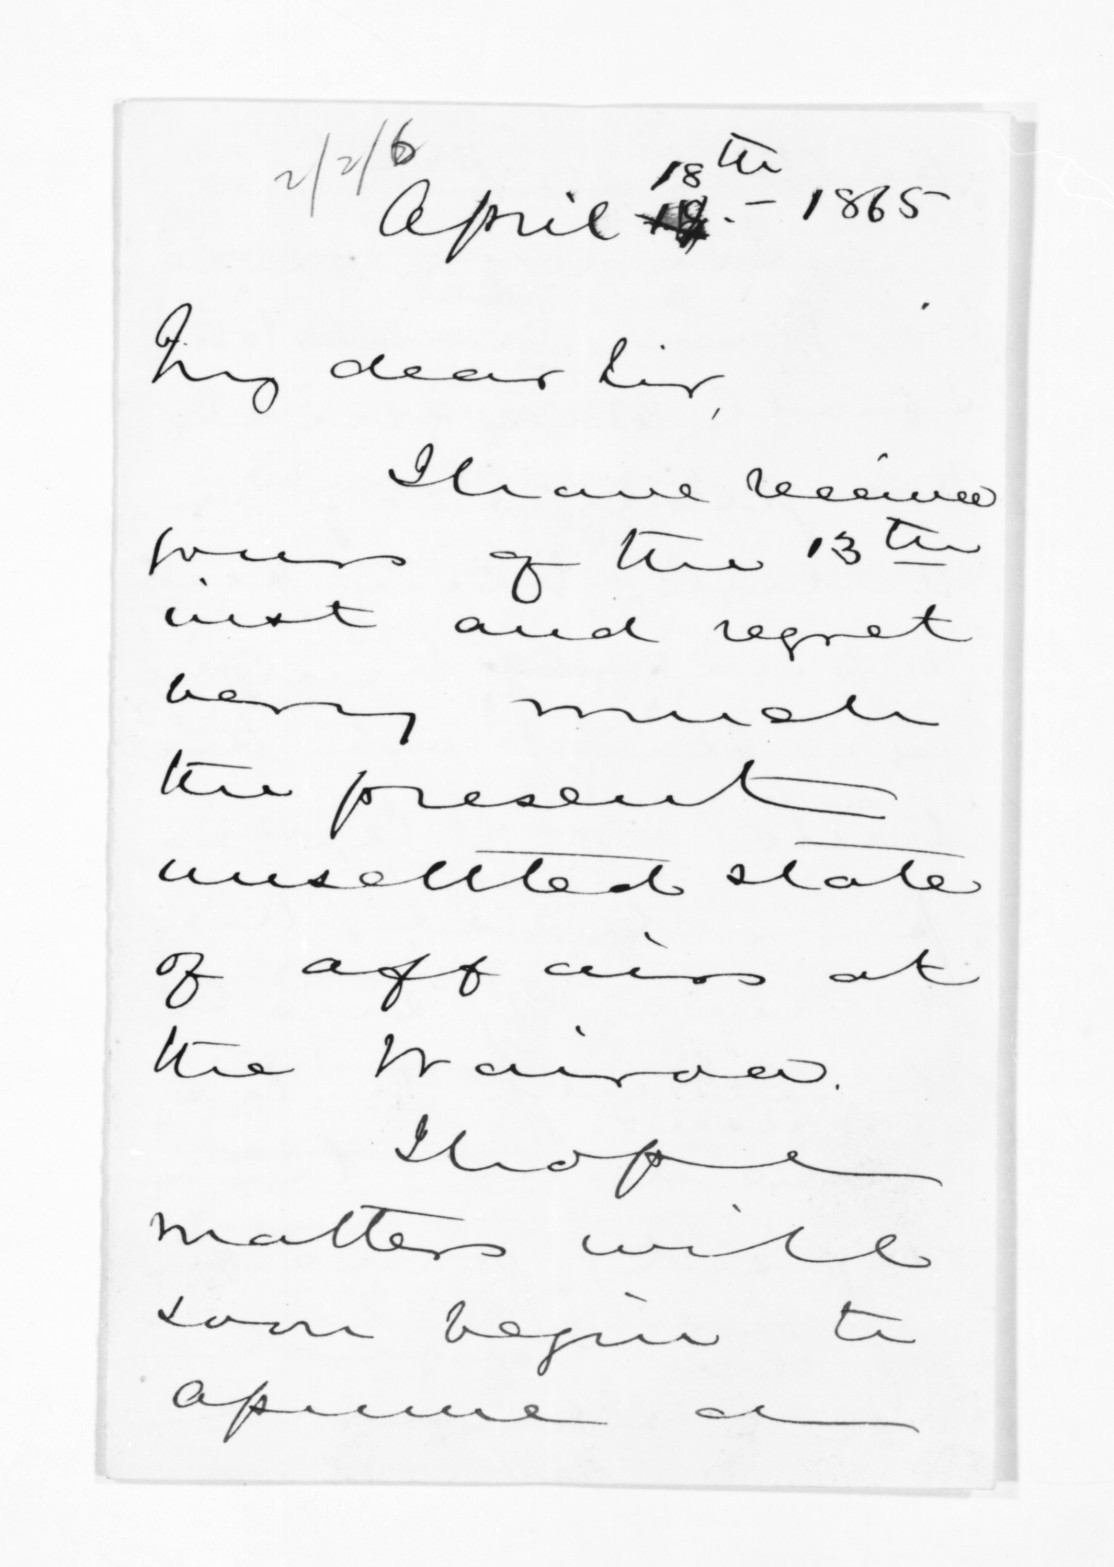 2/2/6
18th
April 19.- 1865
My dear Sir,
I have received
yours of the 13th
inst and regret
very much
the present
unsettled state
of affairs at
the Wairoa.
I hope
matters will
soon begin to
assume a